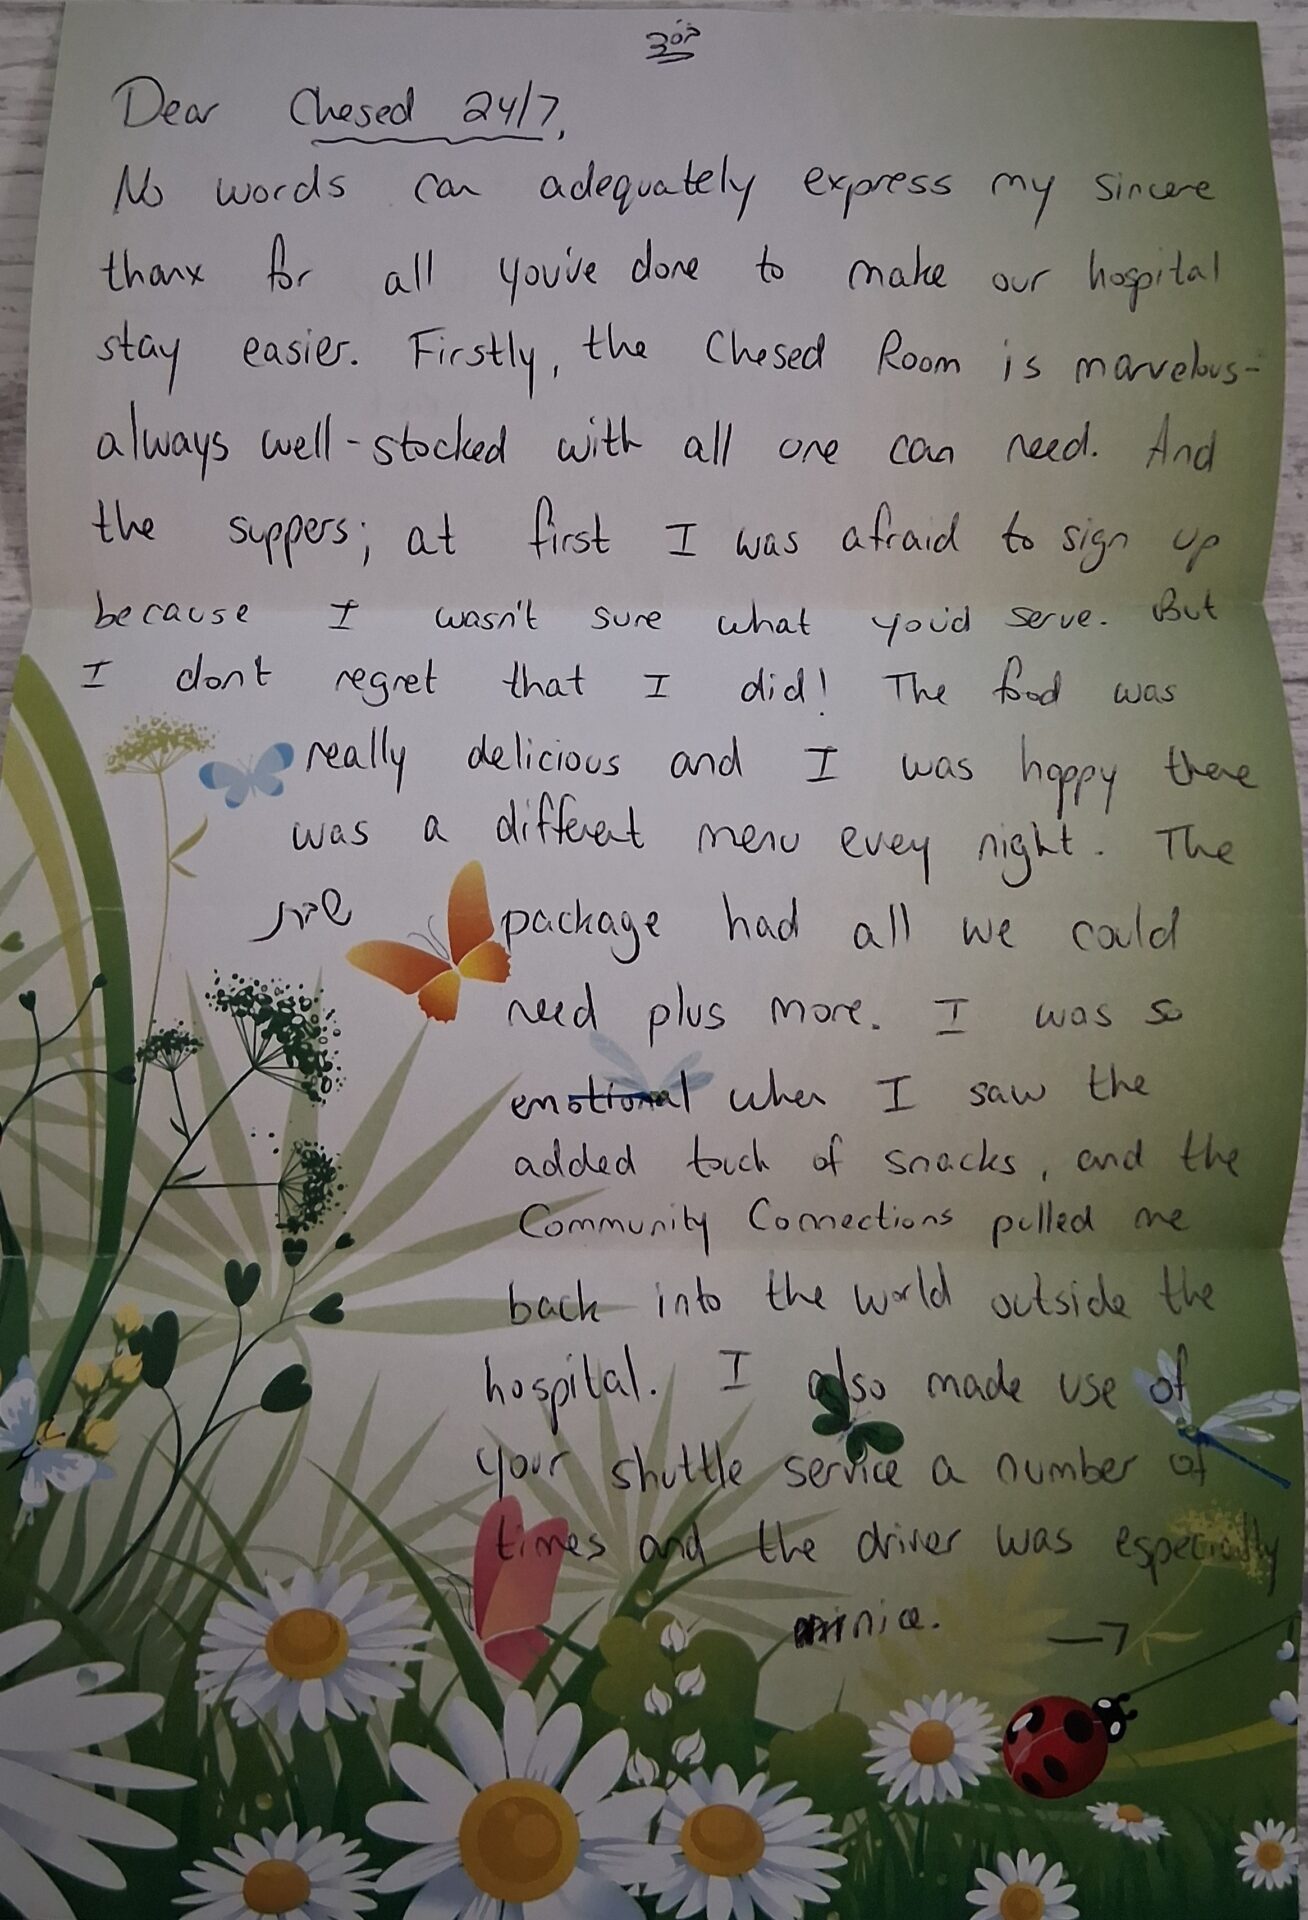 Dear Chesed 24/7,
No words can adequately express my sincere
thanx for all you've done to make our hospital
stay easier. Firstly, the Chesed Room is marvelous-
always well-stocked with all one can need. And
the suppers; at first I was afraid to sign up
because I wasn't sure what you'd serve. But
I don't regret that I did! The food was
really delicious and I was happy there
was a different menu evey night. The
שבת package had all we could
need plus more. I was so
emotional when I saw the
added touch of snacks, and the
Community Connections pulled me
back into the world outside the
hospital. I also made use of
your shuttle service a number of
times and the driver was especially
nice. →